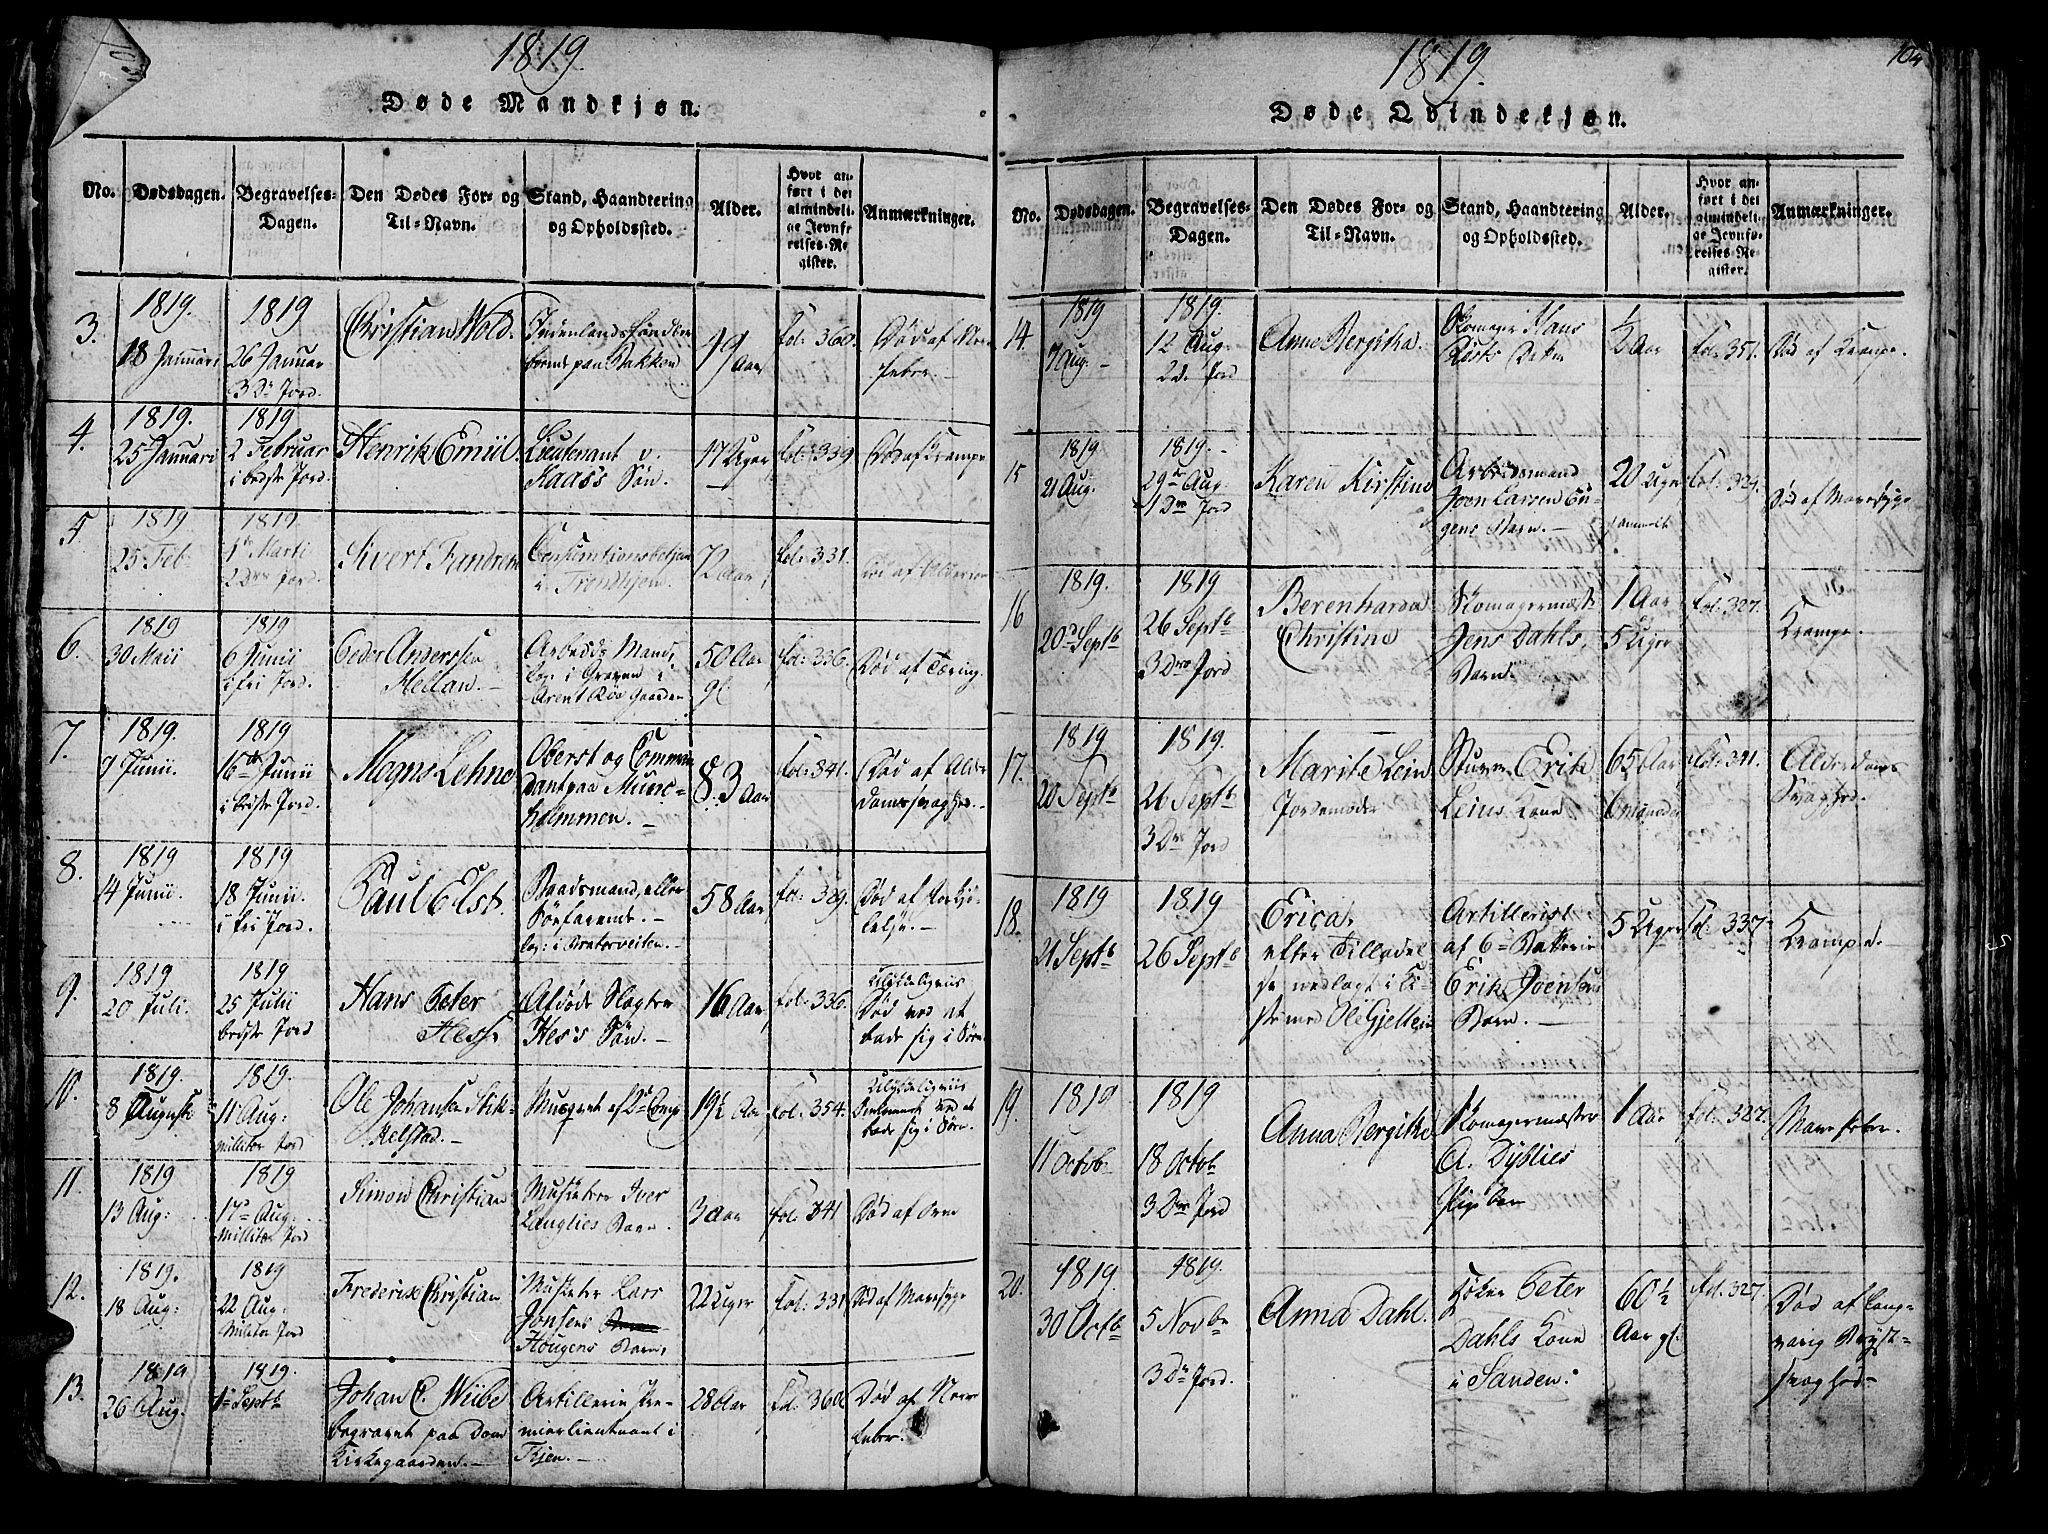 103
1819.
Døde Mandkjøn.
No.
Dødsdagen.
Begravelses-
Dagen.
Den Dødes For- og
Til-Navn.
Stand, Haandtering
og Opholdssted.
Alder.
Hvor an-
ført i det
almindeli-
ge Jevnfø-
relses-Re-
gister.
Anmærkninger.
3.
1819.
18 Januari
1819
26 Januar
3 D. Jord.
Christian Wold.
paa Bakken
49 Aar
fol: 360.
Død af Nerve
feber.
4.
1819.
25 Januari
1819
2 Februar
i bedste Jord.
Henrik Emiil
Lieutenant v.
Kaas's Søn.
17 Uger
fol: 339
Død af Krampe
5
1819
25 Feb.
1819
1 Marti
2den Jord.
Sivert Fandrem
Consumtionsbetjent
i Trondhjem.
72 Aar
fol: 331.
Død af Alderdom
6.
1819
30 Maii
1819
6 Junii
i fri Jord.
Peder Anderssen
Mellan.
Arbeids Mand,
log: i Graven i
Arent Røe Gaarden
50 Aar
gl.
fol: 336.
Død af Tæring.
7.
1819.
9 Junii.
1819
16de Junii
i bedste Jord.
Mogns Lehne
Oberst og Commen
dant paa Munc-
holmmen.
83 Aar
fol: 341.
Død af Alder
doms svaghed.
8.
1819
14 Junii.
1819
18 Junii
i fri Jord.
Paul Elst.
Baadsmand, eller
Søefarende.
log: i Bratørveiten.
58 Aar
fol: 329.
Død af Forkjø-
lelse.
9.
1819
20 Juli.
1819
25 Julii
bedste Jord
Hans Peter
Hess.
Afdøde Slagter
Hes's Søn.
16 Aar
fol: 336.
Ulykkeligviis
Død ved at
bade sig i Søen.
10.
1819.
8 Augusti
1819.
11 Aug:
militær Jord
Ole Johansen Stik-
kelstad.
Musqeteer af 2de Comp
19½ Aar
fol: 354.
Ulykkeligviis
omkommet ved at
bade sig i Søen.
11.
1819
13 Aug:
1819
17. Aug:
Millitær Jord
Simon Christian
Musketeer Iver
Langlies Barn
3 Aar
fol: 341
Død af Orm
12.
1819.
18 Aug:
1819
22 Aug:
Militær Jord
Frederik Christian
Musketeer Lars
Jonsens
Hougens Barn.
22 Uger
fol: 331
Død af Mavesyge
13.
1819
26 Aug.
1819.
1te Septb
Johan C. Wiibe
begravet paa Dom
Kirkegaarden.
Artillerie Pre-
mierlieutenant i
Thjem.
28 Aar
fol: 360
Død af Nerve
feber.
104
1819.
Døde Qvindekjøn.
No.
Dødsdagen.
Begravelses-
Dagen.
Den Dødes For- og
Til-Navn.
Stand, Haandtering
og Opholdssted.
Alder.
Hvor an-
ført i det
almindeli-
ge Jevnfø-
relses-Re-
gister.
Anmærkninger.
14.
1819
7 Aug.
1819.
12 Aug.
2d. Jord
Anne Bergitha.
Skomager Hans
Rosts Datter
½ Aar
fol: 351.
Død af Krampe.
15
1819
21 Aug.
1819.
29de Aug
1ste Jord
Karen Kirstine
Arbeidsmand
Joen Larsen
Barn.
20 Uger
gammelt
fol: 324.
Død af Mavesyge
16
1819.
20de Septb
1819
26 Septb
3die Jord
Berenharda
Christine
Skomagermester
Jens Dahls,
Barn.
1 Aar
5 Uger
fol: 327.
Krampe.
17.
1819
20 Septb
1819.
26 Septb
3die Jord
Marite Lein
Jordemoder
Stuver Erik
Leins Kone
65 Aar
6 Maaneder
fol: 341.
Alderdoms
Svaghed.
18.
1819
21 Septb
1819
26 Septb
Erica.
efter Tilladel
se nedlagt i Ki-
sten med Ole Gjellein
Artillerist
af 6te Batterie
Erik Joensens
Barn.
5 Uger
Fol: 337.
Krampe.
19.
1819
11 Octob
1819
18 Octob
3die Jord
Anna Bergitha
Skomagermester
A. Dyblies
Pigebarn
1 Aar
fol: 327.
Mavefeber.
20.
1819.
30 Octb
1819.
5 Novbr
3die Jord.
Anna Dahl.
Peter
Dahls Kone
i Sanden.
60½
Aar gl.
fol. 327.
Død af lang-
varig Bryst-
svaghed.